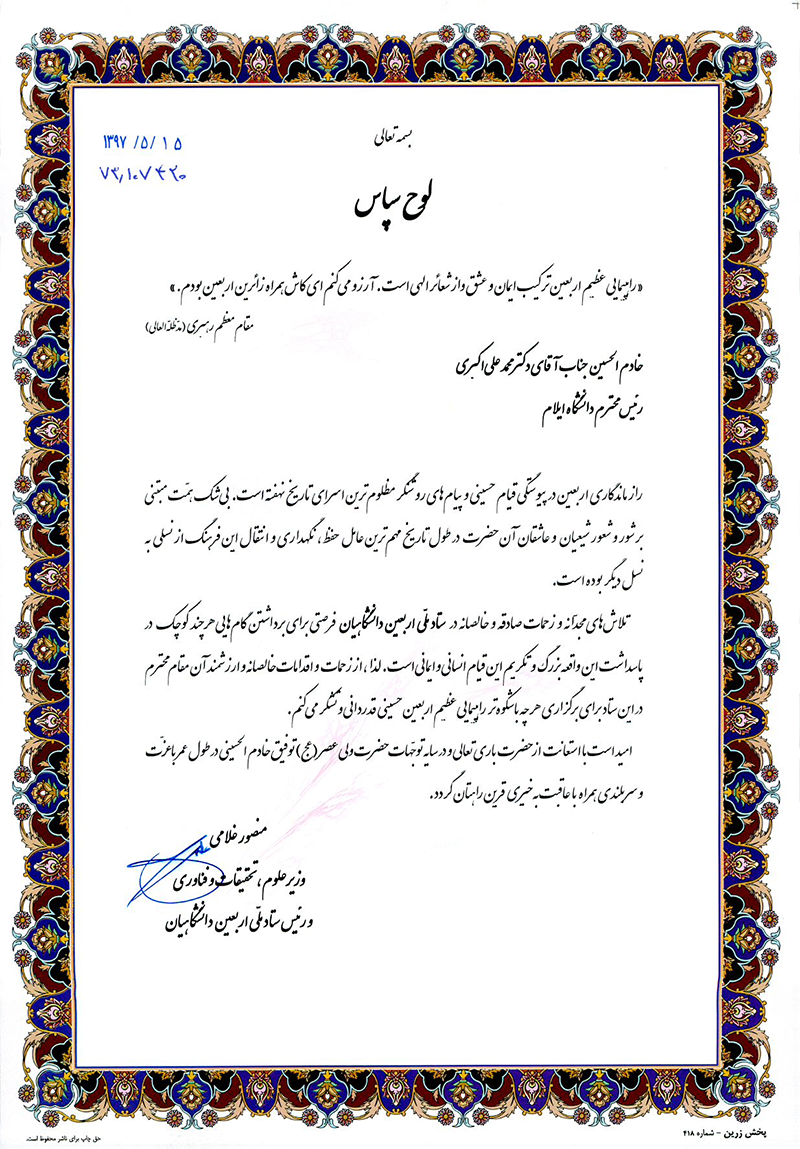 بسمه تعالی
۱۳۹۷/۵/۱۵
۷۳٫۱۰۷۴۲۰
لوح سپاس
«راهپیمایی عظیم اربعین ترکیب ایمان و عشق و از شعائر الهی است. آرزو می کنم ای کاش همراه زائرین اربعین بودم.»
مقام معظم رهبری (مدظله العالی)
خادم الحسین جناب آقای دکتر محمد علی اکبری
رئیس محترم دانشگاه ایلام
راز ماندگاری اربعین در پیوستگی قیام حسینی و پیام های روشنگر مظلوم ترین اسرای تاریخ نهفته است. بی شک همّت مبتنی
بر شور و شعور شیعیان و عاشقان آن حضرت در طول تاریخ مهم ترین عامل حفظ، نگهداری و انتقال این فرهنگ از نسلی به
نسل دیگر بوده است.
تلاش های مجدّانه و زحمات صادقه و خالصانه در ستاد ملّی اربعین دانشگاهیان فرصتی برای برداشتن گام هایی هر چند کوچک در
پاسداشت این واقعه بزرگ و تکریم این قیام انسانی و ایمانی است. لذا، از زحمات و اقدامات خالصانه و ارزشمند آن مقام محترم
در این ستاد برای برگزاری هر چه باشکوه تر راهپیمایی عظیم اربعین حسینی قدردانی و تشکر می کنم.
امید است با استعانت از حضرت باری تعالی و در سایه توجهات حضرت ولی عصر (عج) توفیق خادم الحسینی در طول عمر با عزّت
و سربلندی همراه با عاقبت به خیری قرین راهتان گردد.
منصور غلامی
وزیر علوم، تحقیقات و فناوری
و رئیس ستاد ملّی اربعین دانشگاهیان
پخش زرین - شماره ۴۱۸
حق چاپ برای ناشر محفوظ است.